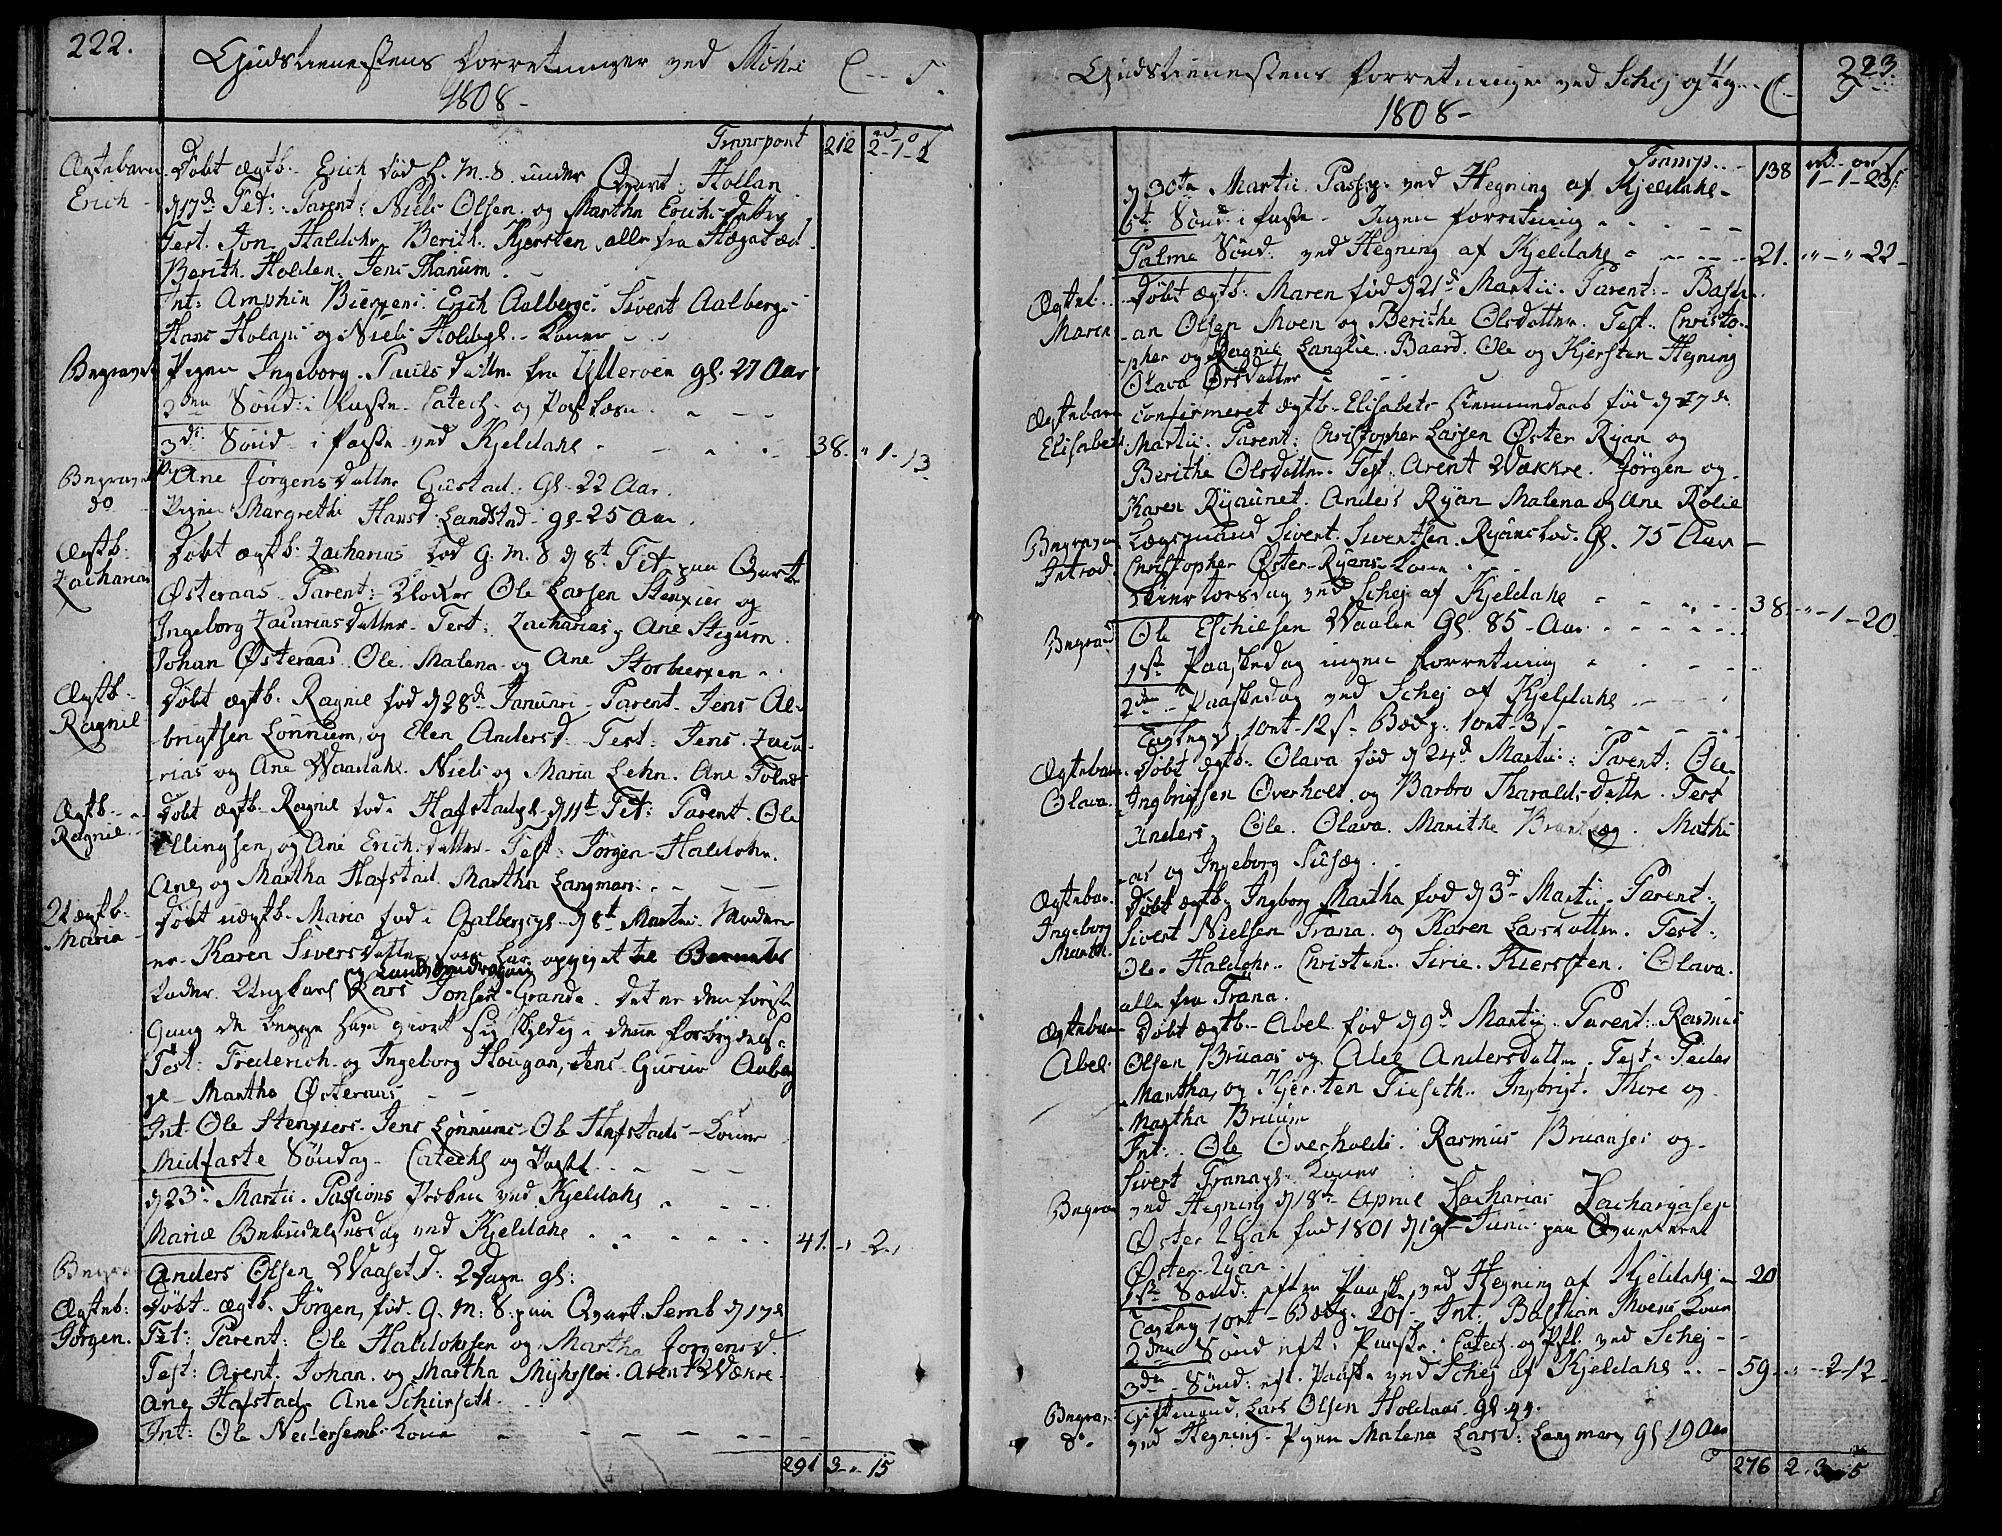 222.
Gudstienestens Forretninger ved Möhre C - S.
1808 -
Transport 212
Ægtebarn Döbt ægtb. Erich föd G. M. S. under Qvart: Hollan
Erich - d 17de Feb: Parent: Niels Olsen og Martha Erichsdatter
Test. Jon Haldohr Berith Kjersten alle fra Høgstad
Berith Holden. Jens Thanum.
Int: Amphin Bierxens Erich Aalbergs. Sivert Aalbergs
Hans Holans og Niels Holdegl. Koner
Begravet Pigen Ingeborg Paulsdatter fra Ytteröen gl. 27 Aar
2den Sönd: i Faste. Catech. og
3die Sönd i Faste ved Kjeldahl 38. " 1 - 13
Begravet Ane Jörgensdatter Gustad. Gl. 22 Aar.
do Pigen Margrethe Hansd. Landstad gl. 25 Aar.
Ægtb. Döbt ægtb. Zacharias föd G. M. S d 8t Feb paa Qvart
Zacharias Österaas. Parent: Klocker Ole Larsen Stenxier og
Ingeborg Zacariasdatter. Test: Zacharias, Ane Stigum.
Johan Österaas. Ole. Malena og Ane Storbierxen
Ægtb. Döbt ægtb. Ragnil föd d 28de Januari Parent. Jens Al-
Ragnil brigtsen Lönnum, og Elen Andersd. Test: Jens. Zaca-
rias og Ane Waadahl. Niels og Maria Lehn. Ane
Ægtb. Döbt ægtb. Ragnil föd i Hafstadgl d 11t Feb: Parent. Ole
Ragnil Ellingsen, og Ane Erichsdatter Test: Jörgen Haldohr.
Ane, og Martha Hafstad. Martha Langman:
Uægtb. Döbt uægtb. Maria föd i Aalbergsgl d 8t Martii. Moder
Maria er Karen Siversdatter som har opgivet til Barnets
og Landsdragoon
Fader. Ungkarl Lars Jonsen Grande. Det er den förste
Gang de begge have giort sig skyldig i denne forbrydelse.
Test: Frederich og Ingeborg Hougan, Jens Guruv Aalberg
gl - Martha Österaas
Int: Ole Stenxiers. Jens Lönnums. Ole Hafstads Koner
Midfaste Söndag Catech og
d 23de Martii Passions Præken ved Kjeldahl
Mariæ Bebudelsesdag ved Kjeldahl 41. " 2.
Begrav Anders Olsen Waaset d: 2 Dage gl:
Ægteb: Döbt ægtb. Jörgen, föd. G. M. S. paa Qvart. Semb d 17de
Jörgen. Feb: Parent: Ole Haldohrsen og Martha Jörgensd.
Test: Arent. Johan. og Martha Myhrslos. Arent Wækre.
Ane Hafstad. Ane Schierseth
Int: Ole Nedersemb Kone
291 3 " 15
223.
Gudstienestens Forretninger ved Schej og Hegn. C. S
1808 -
Transp. 138 1 - 1 - 23
d 30te Martii. Passp. ved Hegning af Kjeldahl -
5te Sönd: i Faste. Ingen forretning
Palme Sönd. ved Hegning af Kjeldahl 21. " - " 22
Ægteb. Döbt ægtb. Maren föd d 21de Martii. Parent: Basti-
Maren an Olsen Moen og Berithe Olsdatter. Test. Christo-
pher og Ragnil Langlie. Baard. Ole og Kjersten Hegning
Olava Örsdatter
Ægtebarn Confirmeret ægtb. Elisabeth hiemmedöbt föd d 17de
Elisabeth Martii. Parent: Christopher Larsen Öster Ryan og
Berithe Olsdatter. Test: Arent Wækkre. Jörgen og
Karen Ryaunet. Anders Ryan Malena og Ane Rolie
Begraven Lægsmand Sivert Siventsen Ryanstad. Gl. 75 Aar
Introd. Christopher Öster Ryans Kone
Skiertorsdag ved Schej af Kjeldahl 38. " - 1 - 20
Begrav Ole Eschilsen Waalen Gl. 85 Aar
1ste Paaskedag ingen forretning
2den Paaskedag ved Schej af Kjeldahl
1ort - 12 s. 1ort - 3
Ægtebarn Döbt ægtb. Olava föd d 24de Martii: Parent: Ole
Olava Ingbrigtsen Overholt og Barbro Tharaldsdatter. Test
Anders. Ole. Olava. Marithe. Mathi-
as og Ingeborg
Ægtebar. Döbt ægtb. Ingborg Martha föd d 3de Martii. Parent:
Ingeborg Sivert Nielsen Trana og Karen Larsdatter. Test:
Marth. Ole. Haldohr. Christen. Sirie. Kiersten. Olava.
alle fra Trana.
Ægtebarn Döbt ægtb. Abel föd d 9de Martii. Parent: Rasmus
Abel Olsen Bruaas og Alel Andersdatter. Test. Peder
Martha, og Kjersten Tiseth. Ingbrigt. Thore og
Martha Bruum
Int: Ole Overholds. Rasmus Bruaases og
Sivert Tranas Koner
Begrav ved Hegning d 18de April Zacharias Zachariasen
Öster Ryan föd 1801 d 19de Junii paa Qvarteret
Öster Ryan.
1ste Sönd: efter Paaske ved Hegning af Kjeldahl 20
1ort - 20 s. Int: Bastian Moens Kone
2den Sönd eft: Paaske: Catech og ved Schej
3die Sönd: eft. Paaske ved Schej af Kjeldahl 59 - 2 - 12
Begrav: Giftmand, Lars Olsen Holdaas gl. 44.
do. ved Hegning Pigen Malena Larsd: Langman, gl 19 Aar
276 2 . 3 5